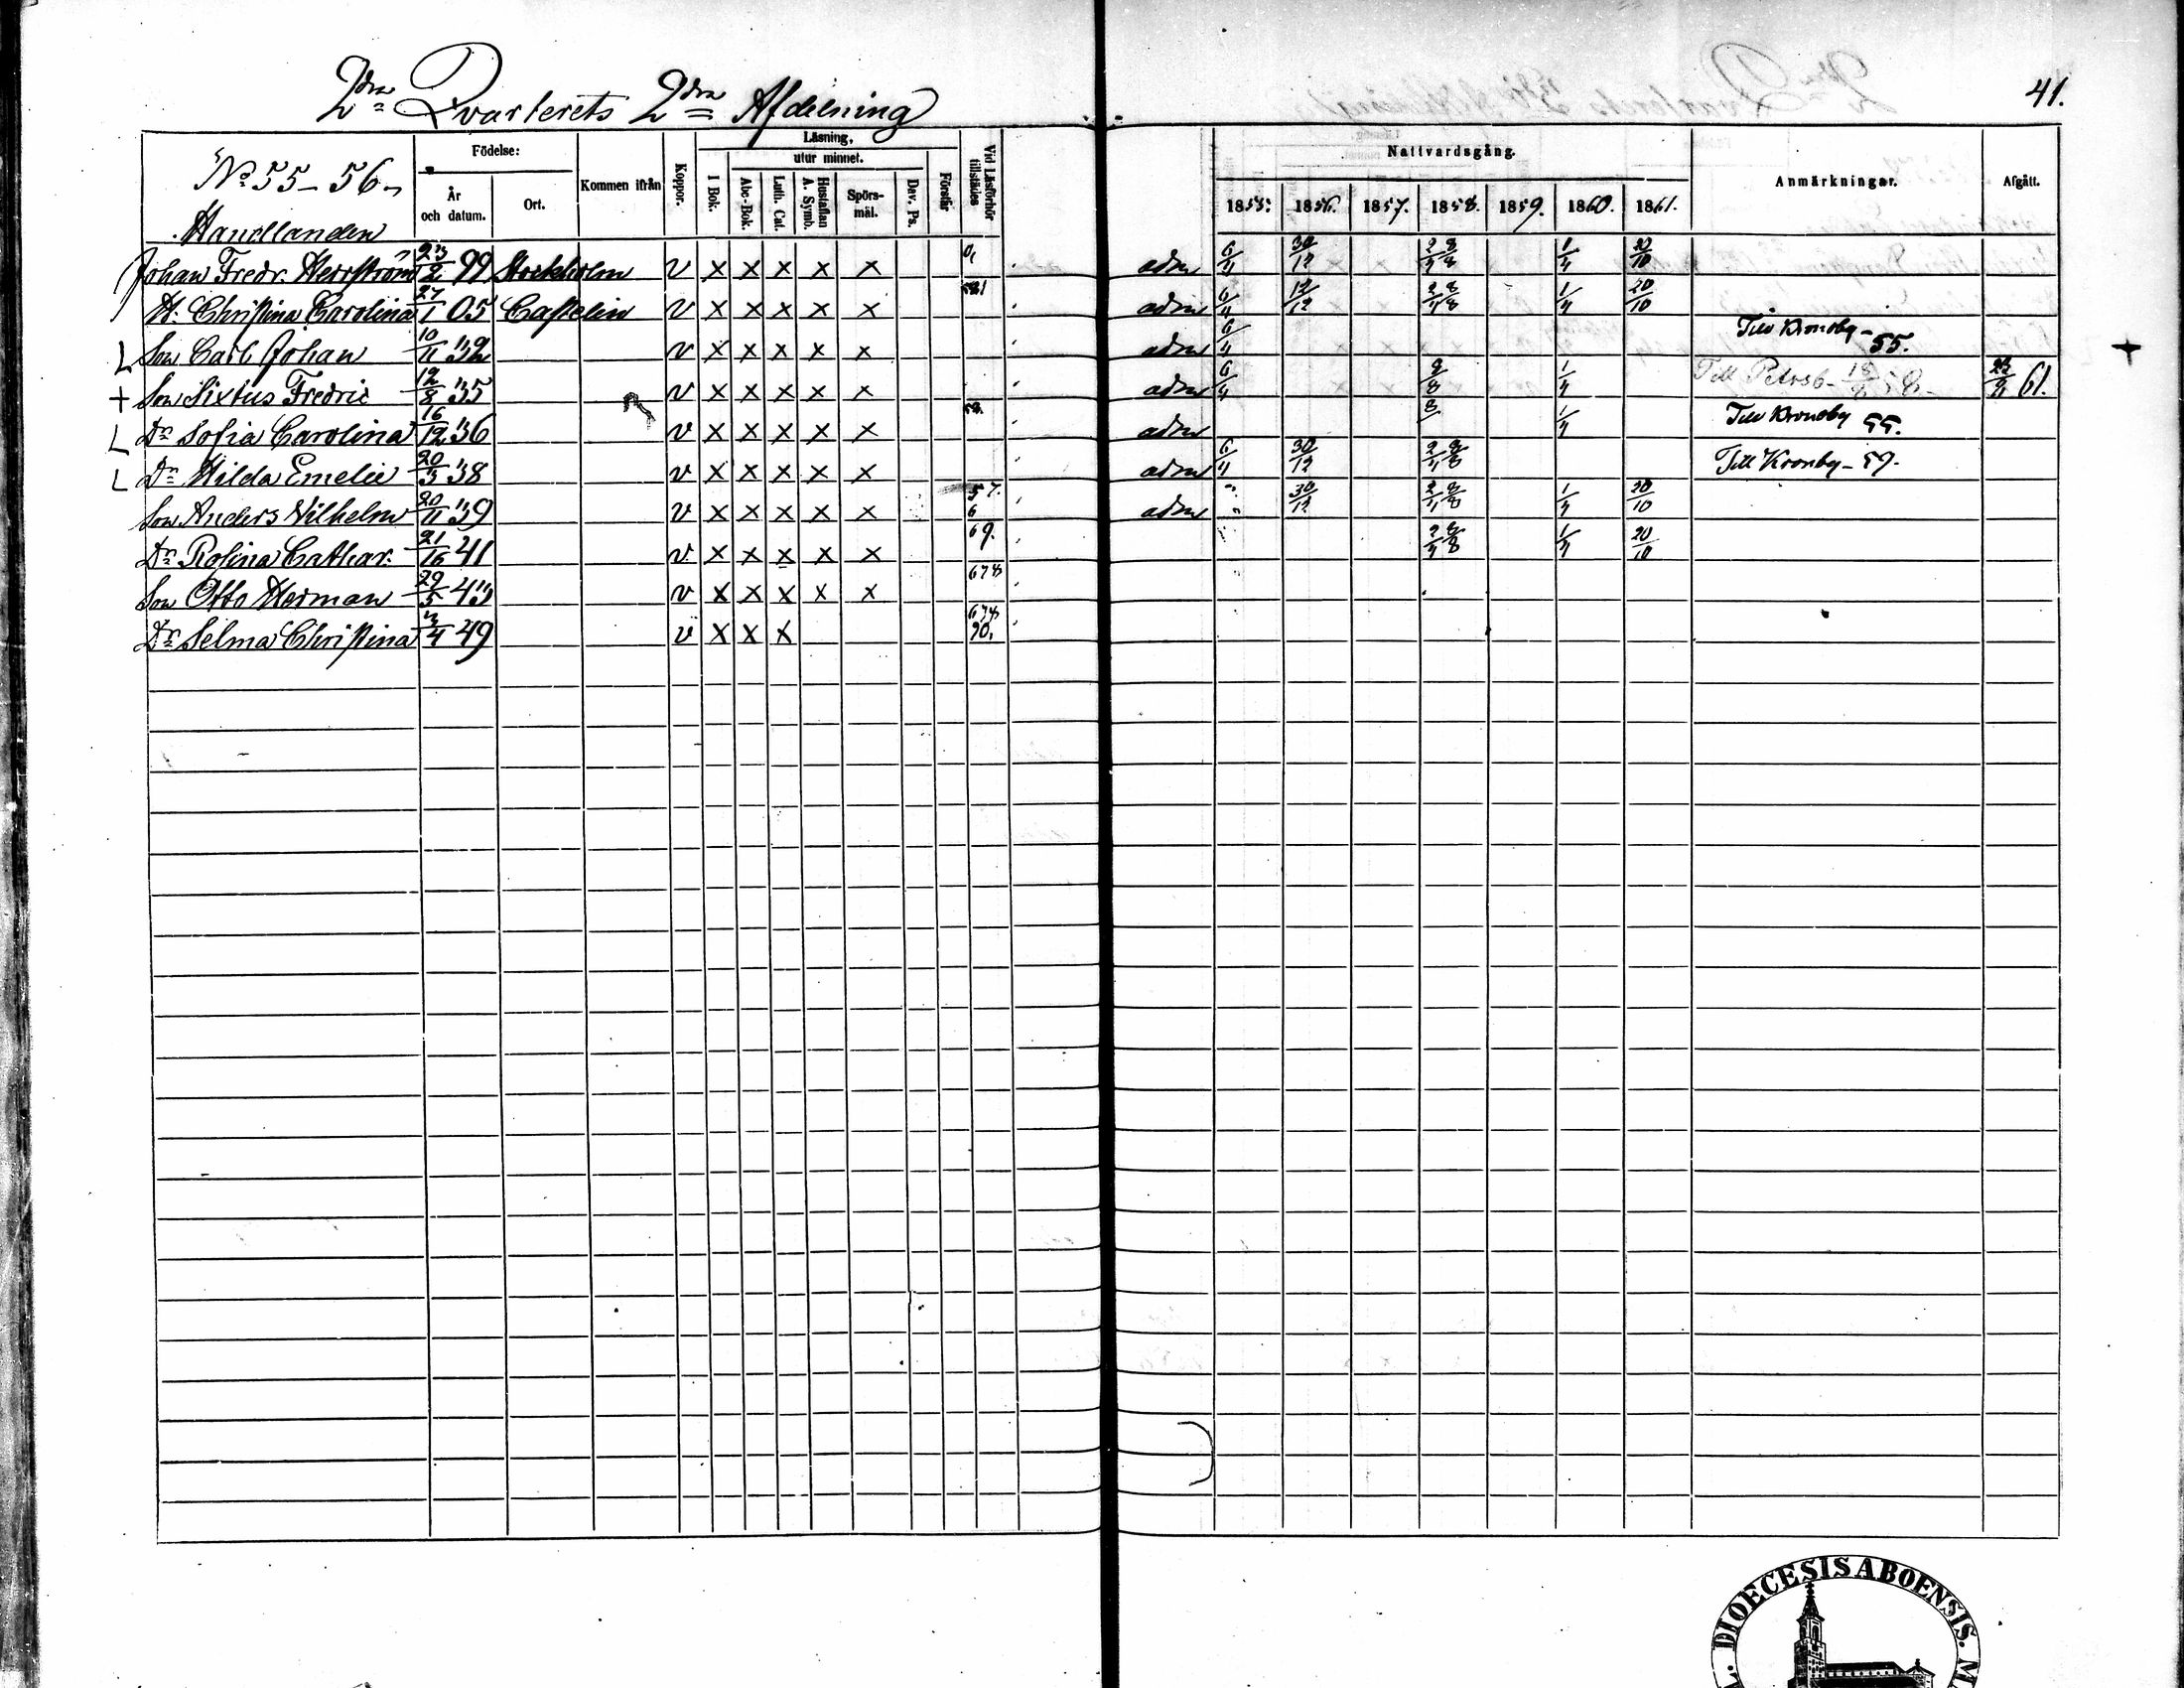 2dra Qvarterets 2dra Afdelning
41.
No 55-56-
Födelse:
År och datum.
Ort.
Kommen ifrån
Koppor.
Läsning,
utur minnet.
I Bok.
Abc-Bok.
Luth. Cat.
Hustaflan A. Symb.
Spörs-mål.
Dav. Ps.
Förstår
Vid Läsförhör tillstädes
Nattvardsgång.
1855. 1856. 1857. 1858. 1859. 1860. 1861.
Anmärkningar.
Afgått.
Handlanden
Johan Fredr. Herrström 23/2 99 Stockholm v x x x x x adm 6/4 30/12 2/4 8/8 1/4 20/10
H. Christina Carolina 27/1 05 Castelin v x x x x x adm 6/4 12/12 2/4 8/8 1/4 20/10
L Son Carl Johan 10/11 32 v x x x x x adm 6/4 Till Kronoby - 55.
+ Son Sixtus Fredric 12/8 35 v x x x x x adm 6/4 8/8 1/4 Till Petersb - 18/8 58 - 61.
L Dr Sofia Carolina 16/12 36 v x x x x x adm 8/ 1/4 Till Kronoby 55.
L Dr Hilda Emelie 20/3 38 v x x x x x adm 6/4 30/12 2/4 8/8 Till Kronby - 59.
Son Anders Vilhelm 20/11 39 v x x x x x 57. 6 adm 30/12 2/4 8/8 1/4 20/10
Dr Rosina Cathar. 21/16 41 v x x x x x 69. 2/4 8/8 1/4 20/10
Son Otto Herman 29/5 43 v x x x x x 678
Dr Selma Christina 3/4 49 v x x x 678 90.
DIOECESIS ABOENSIS.